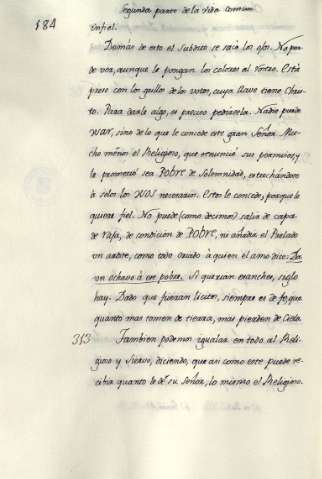 184
Segunda parte de la vida comun
infiel.
Demas de esto el Subdito se saca los ojos. No pue-
de ver, aunque le pongan los colores al Vivo. Està
preso con los grillos de los votos, cuya llave tiene Chris-
to. Para darle algo, es preciso pedirsela. Nadie puede
usar, sino de lo que le concede este gran Señor. Mu-
cho menos el Religioso, que renunciò sus permisos, y
le prometiò ser Pobre de solemnidad, estrechandose
à solos los usos necesarios. Estos le concede, porque le
quiere fiel. No puede (como decimos) salir de capa
de raja, de condicion de Pobre, ni añadir el Prelado
un ardite, como todo criado à quien el amo dice: Da
un ochavo à un pobre. Si quieran ensanches, siglo
hay. Dado que fueran licitos, siempre es de fe que
quanto mas tomen de tierra, màs pierden de Cielo.
313 Tambien podemos igualar en todo al Reli-
gioso y Siervo, diciendo, que asi como este puede re-
cibir quanto le dè su Señor, lo mismo el Religioso.